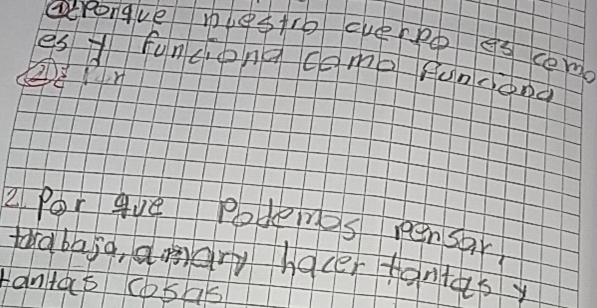 ① ¿Porque nuestro cuerpo es como
es y funciona como funciona
② ¿
2. Por que Podemos pensar,
trabaja, amary hacer tantas y
tantas cosas